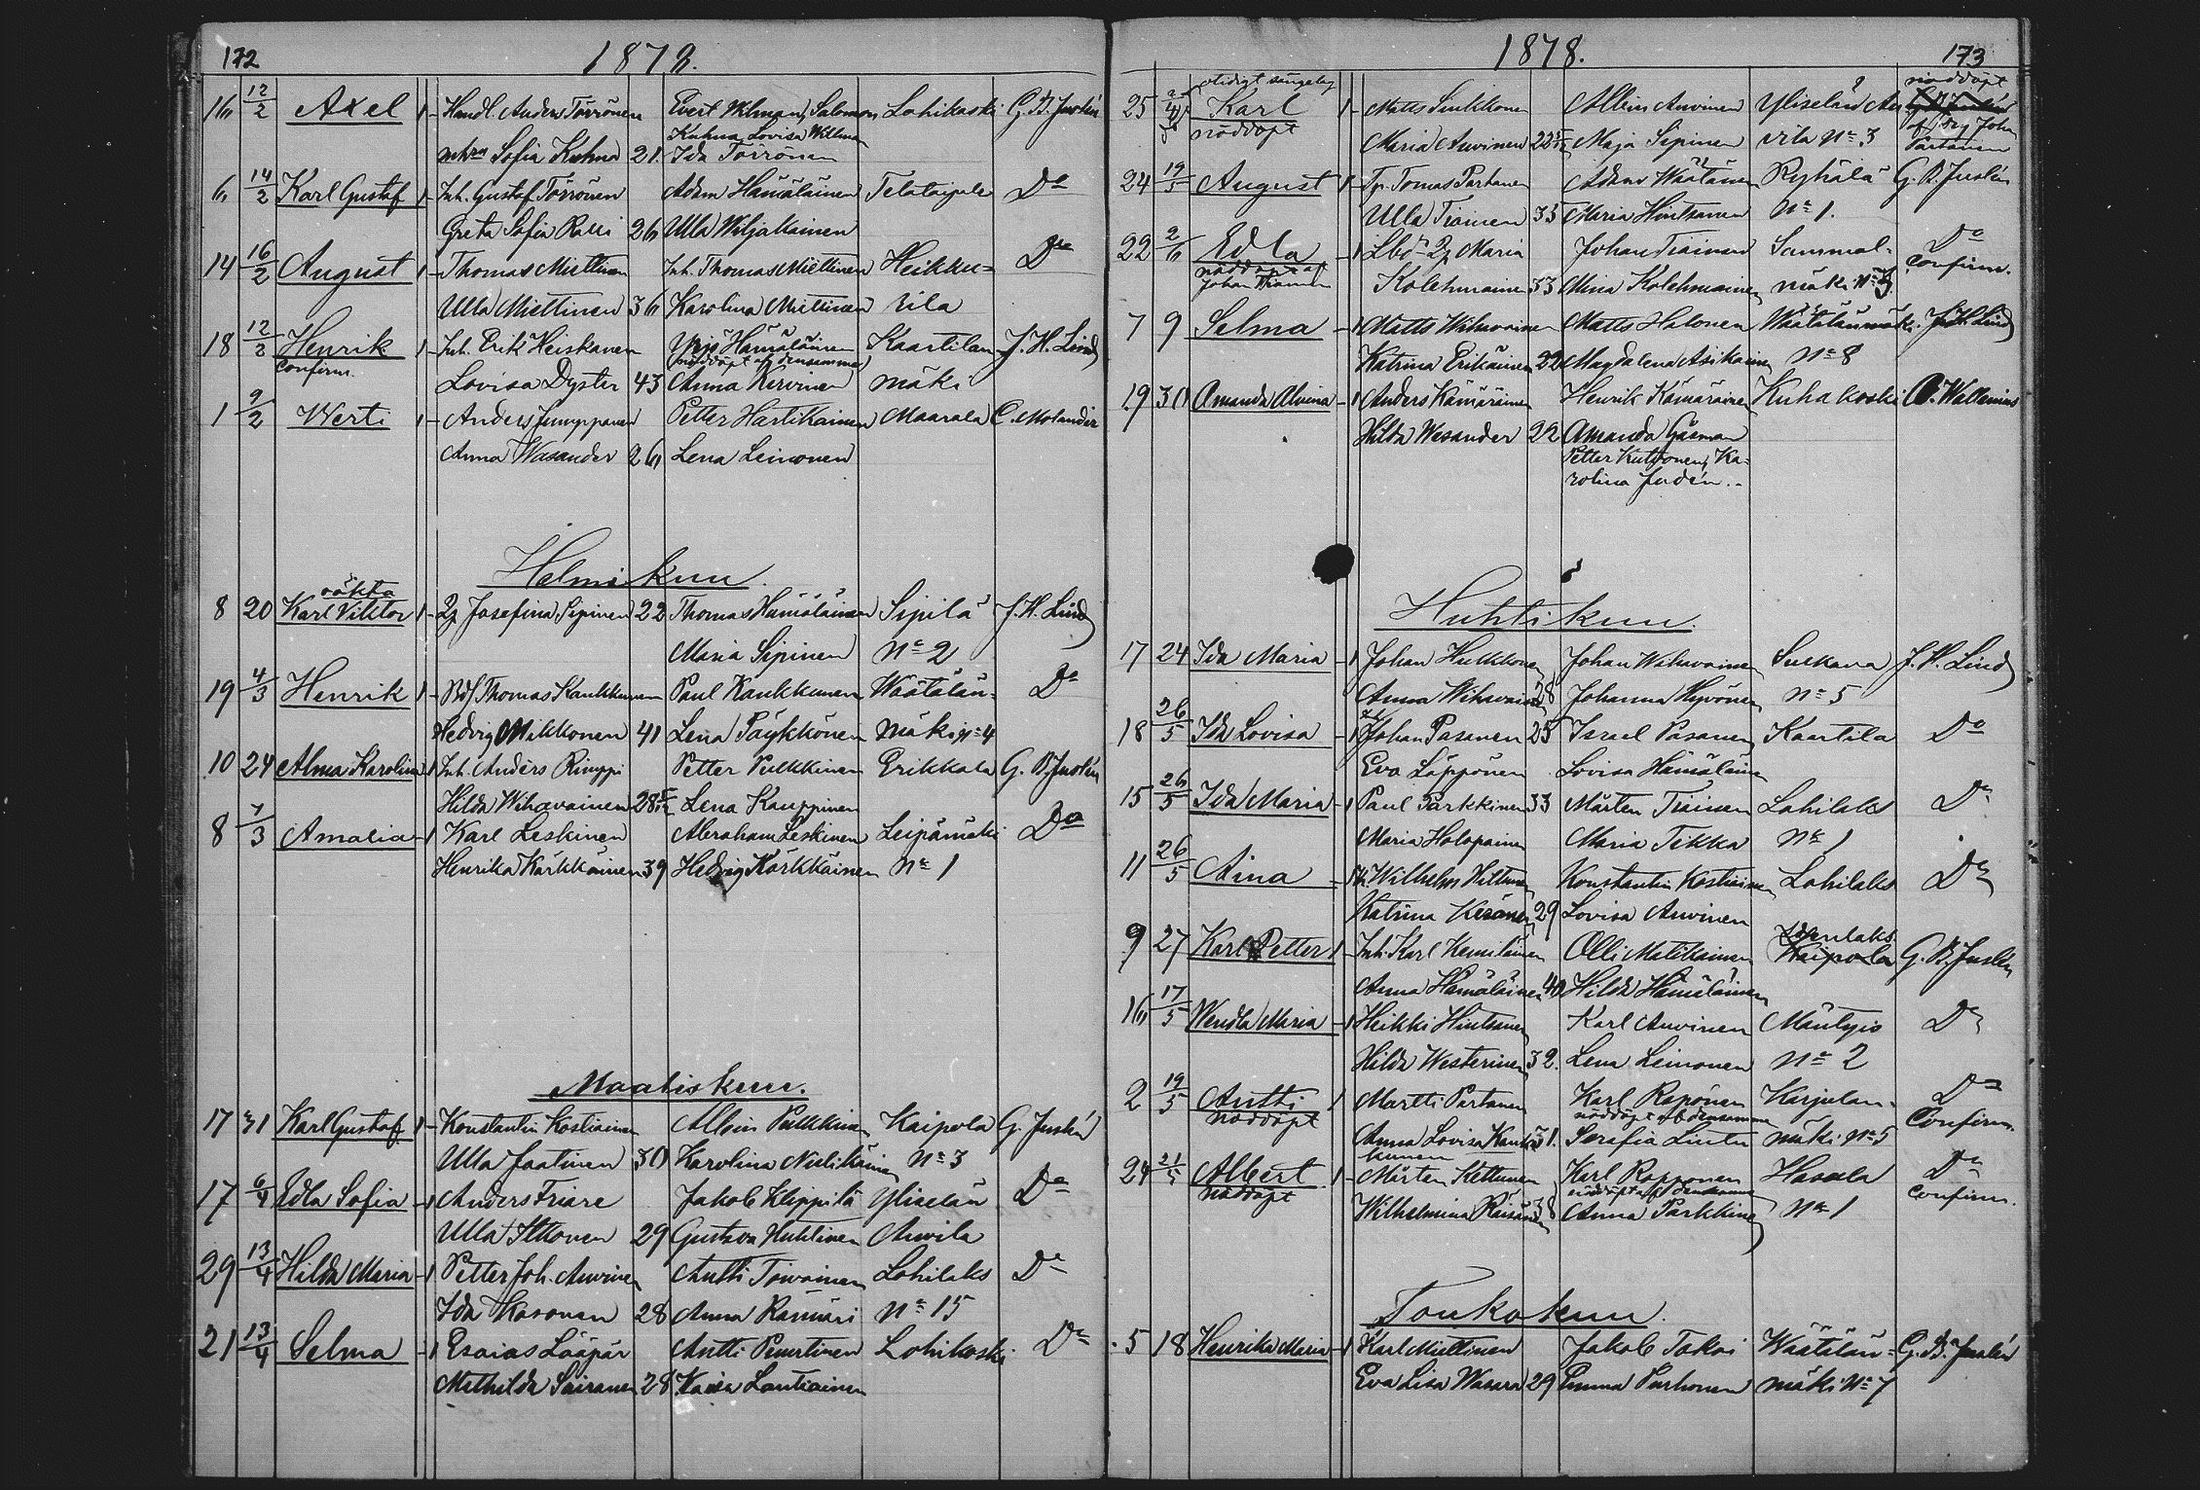 172 1878.
16 12/2 Axel 1 Handl. Anders Törrönen Evert Wilman, Salomon Lohikoski G. B. Juslén
Kuhma, Lovisa Wilman
Sofia Kuhma 21. Ida Törrönen
6 14/2 Karl Gustaf 1 Inh. Gustaf Törrönen Adam Hämäläinen Telataipale Do
Greta Sofia Ralli 26 Ulla Wiljakainen
14 16/2 August 1 Thomas Miettinen Inh. Thomas Miettinen Heikku= Do
Ulla Miettinen 36 Karolina Miettinen rila
18 12/2 Henrik 1 Inh. Erik Heiskanen Yrjö Hämäläinen Kaartilan J. H. Lind
Confirm. (nöddöpt af densamma)
Lovisa Dyster 43 Anna Kervinen mäki
1 9/2 Werti 1 Anders Jumppanen Petter Hartikainen Maarala C. Molander
Anna Wasander 26 Lena Leinonen
Helmikuu.
oäkta
8 20 Karl Viktor 1 Josefina Sipinen 22 Thomas Hämäläinen Sipilä J. H. Lind
Maria Sipinen No 2
19 4/3 Henrik 1 Thomas Kaukkunen Paul Kaukkunen Väätälän- Do
Hedvig Mikkonen 41 Lena Päykkönen mäki No 4
10 24 Alma Karolina 1 Inh. Anders Rimppi Petter Pulkkinen Erikkala G. B. Juslén
Hilda Wihavainen 28 Lena Kauppinen
8 7/3 Amalia 1 Karl Leskinen Abraham Leskinen Leipämäki Do
Henrika Kärkkäinen 39 Hedvig Kärkkäinen No 1
Maaliskuu.
17 31 Karl Gustaf 1 Konstantin Kostiainen Albin Pulkkinen Kaipola G. Juslén
Ulla Jaatinen 30 Karolina Nulikäinen No 3
17 6/4 Edla Sofia 1 Anders Friare Jakob Klippilä Yliselän Do
Ulla Ikonen 29 Gustava Huhtinen Auvila
29 13/4 Hilda Maria 1 Petter Joh. Auvinen Antti Toivainen Lohilaks Do
Ida Kosonen 28 Anna Rämäri No 15
21 13/4 Selma 1 Esaias Lääpär Antti Penttinen Lohikoski Do
Mathilda Sairanen 28 Kaisa Lautiainen
1878. 173
nöddöpt
25 Karl 1 Matts Sinkkonen Albin Auvinen Yliselän Au
nöddöpt Maria Auvinen 22 Maja Sipinen vila No 3 Partanen
24 19/5 August 1 Tomas Partanen Adam Väätäinen Ryhälä G. B. Juslén
Ulla Tiainen 35 Maria Hintsanen No 1.
22 2/6 Edla 1 Maria Johan Tiainen Sammal= Do
nöddöpt af Confirm.
Johan Tiainen Kolehmainen 33 Mina Kolehmainen mäki No 3
7 9 Selma 1 Matts Wihavainen Matts Halonen Väätälänmäki J. H. Lind
Katrina Erikäinen 22 Magdalena Asikainen No 8
19 30 Amanda Alvina 1 Anders Kämäräinen Henrik Kämäräinen Kuhakoski A. Wallenius
Hilda Wasander 22 Amanda Gäsman
Petter Kutvonen, Ka=
rolina Judén.
Huhtikuu.
17 24 Ida Maria 1 Johan Hulkkonen Johan Wihavainen Sulkava J. H. Lind
Anna Wihavainen 28 Johanna Hyvönen No 5
18 26/5 Ida Lovisa 1 Johan Pasanen 25 Israel Pasanen Kaartila Do
Eva Läppönen Lovisa Hämäläinen
15 26/5 Ida Maria 1 Paul Parkkinen 33 Mårten Tiainen Lohilaks Do
Maria Holopainen Maria Tikka No 1
11 26/5 Aina 1 Wilhelm Hiltunen Konstantin Kostiainen Lohilaks Do
Katrina Keränen 29 Lovisa Auvinen
9 27 Karl Petter 1 Inh. Karl Kemiläinen Olli Matikainen Kaipola G. B. Juslén
Anna Hämäläinen 40 Hilda Hämäläinen
16 17/5 Wendla Maria 1 Heikki Hintsanen Karl Auvinen Mäntyis Do
Hilda Westerinen 32. Lena Leinonen No 2
2 19/5 Antti 1 Martti Partanen Karl Raponen Karjulan- Do
nöddöpt nöddöpt af densamma Confirm.
Anna Lovisa Kauk= 31. Serafia Lintu mäki No 5
kunen
24 21/5 Albert 1 Mårten Kettunen Karl Rapponen Hasula Do
nöddöpt nöddöpt af densamma Confirm.
Wilhelmina Räisänen 38 Anna Parkkinen No 1
Toukokuu.
5 18 Henrika Maria 1 Karl Miettinen Jakob Takoi Väätälän= G. B. Juslén
Eva Lisa Wasara 29 Emma Turhonen mäki No 7